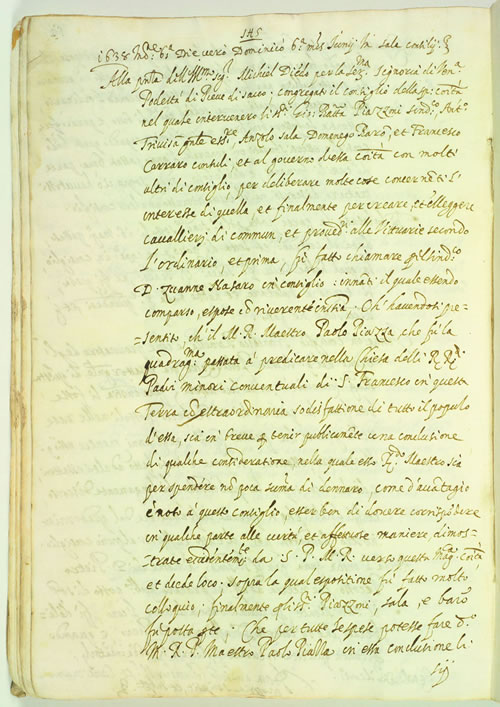 145
1638 Ind.e 6.a Die vero Dominico 6.a mẽs Junij In sala consilij
Alla pñtia dell' Ill.mo Sig.r Michiel Diedo per la Ser.ma Signoria di Ven.a
Podestà di Pieve di sacco: congregato il consiglio della sp: cõità
nel quale intervenero li ss.ri Gio: Batta Piazzoni sind.co Ant.o
Trivisan Anzolo sala, Domenego Barõ, et Francesco
Carraro consuli, et al governo d'essa cõità con molti
altri di consiglio, per deliberare molte cose concernẽti l'
interesse di quella, et finalmente per creare, et ellegere
cavallieri di commun, et proved.i alle vituarie secondo
l'ordinario, et prima, fù fatto chiamare
D. Zuanne Nasaro in consiglio: innãti il quale essendo
comparso, espose cõ riverente instãtia, Ch' havendosi pre=
=sentito, ch' il M. R. Maestro Paolo Piazza, che fù la
quadrag.ma passata à predicare nella Chiesa delli R.R.di
Padri minori conventuali di S. Francesco in questa
Terra cõ estraordinaria sodisfattione di tutto il populo
d'essa, sia in breve p tenir publicamẽte una conclusione
di qualche consideratione, nella quale esso P. Maestro sia
per spendere nõ poca sũma di dennaro, come d'avãtagio
è noto à questo consiglio, esser ben di dovere corrispõdere
in qualche parte alle vertù, et affettuose maniere dimos=
=trate evidentem.te da S. P. M. R. verso questa Mag.ca cõità
et de de loco. sopra la qual espositione fù fatto molto
colloquio, finalmente Piazzoni, sala, e barõ
fù posta pte, Che per tutte le spese potesse fare d.o
M. R. P. Maestro Paolo Piazza in essa conclusione li
sij